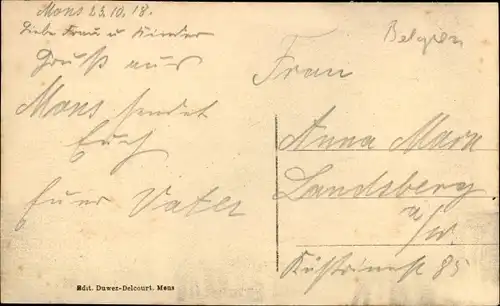 Mons 23.10.18.
Liebe Frau u Kinder
Gruß aus
Mons sendet
Euch
Euer Vater
Belgien
Frau
Anna Marx
Landsberg
a/W.
Küstrinerst 85
Edit. Duwez-Delcourt. Mons